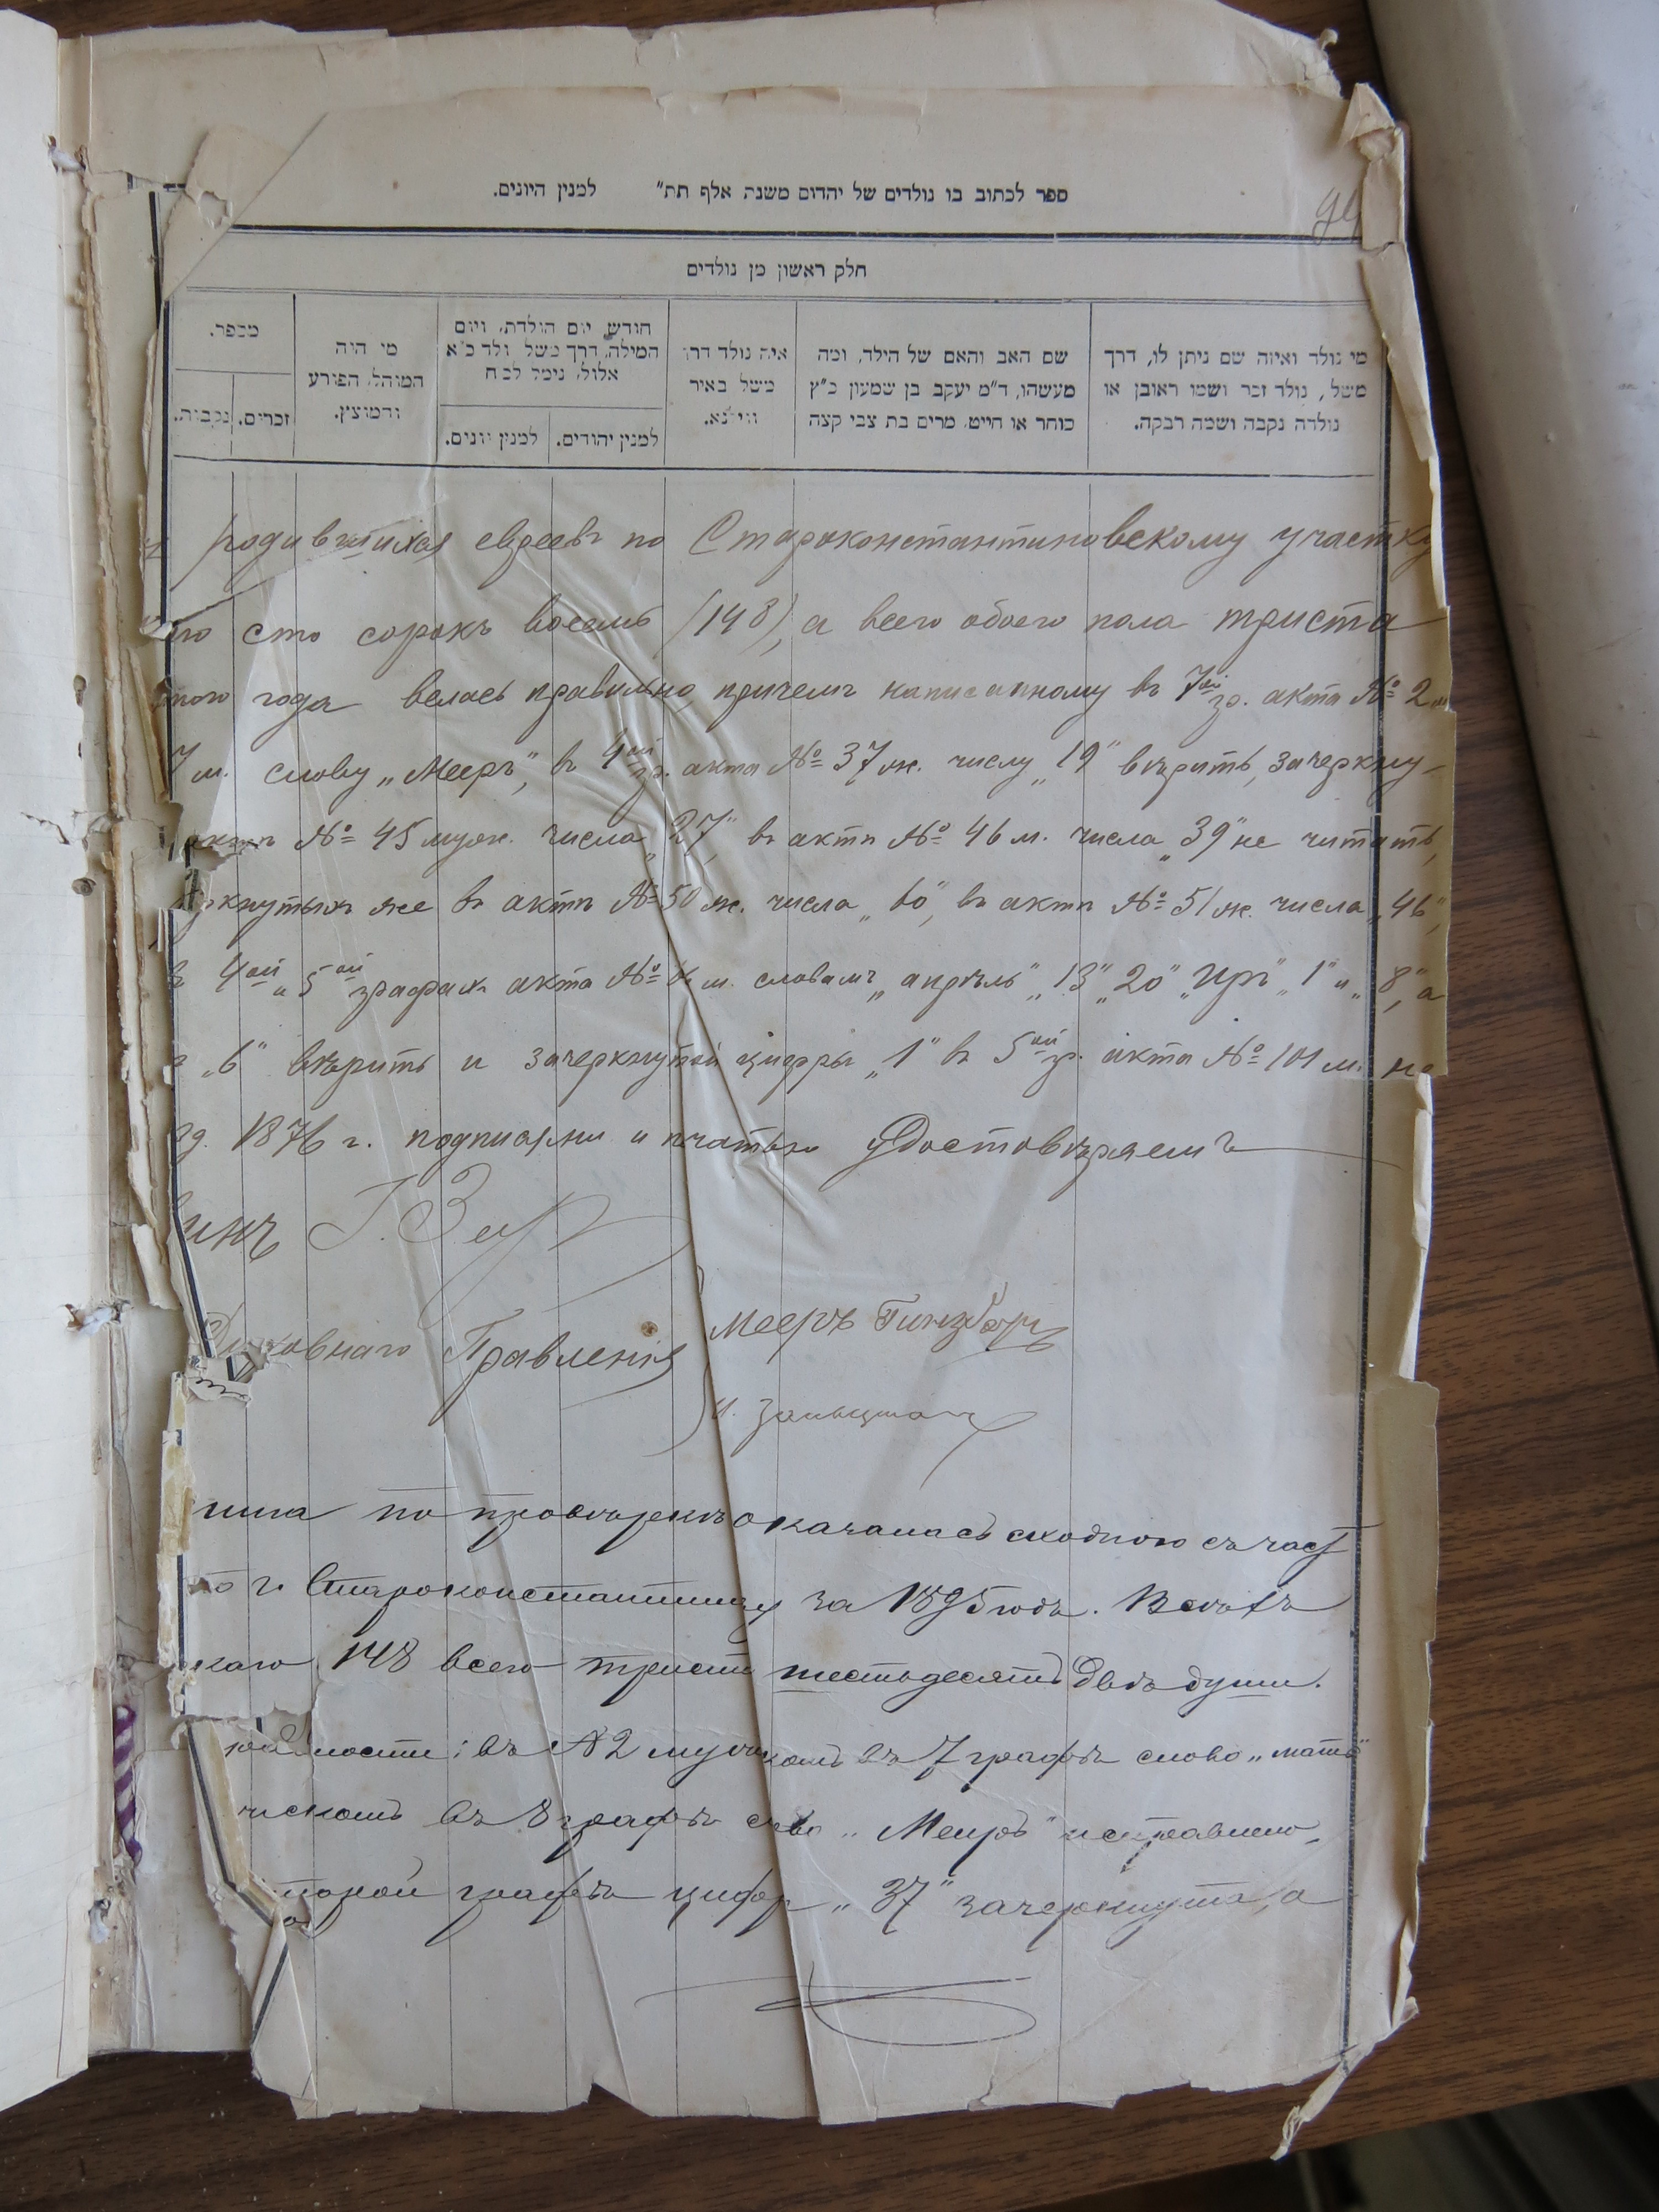 ספר לכתוב בו נולדים של יהדים משנת אלף תת״ למנין היונים.
חלק ראשון מן נולדים
מי נולד ואיזה שם ניתן לו, דרך משל, נולד זכר ושמו ראובן או נולדה נקבה ושמה רבקה.
שם האב והאם של הילד, ומה מעשהו, ד״מ יעקב בן שמעון כ״ץ סוחר או חייט, מרים בת צבי קצה
איה נולד דרך משל באיר ווילנא.
חודש, יום הולדת, ויום המילה, דרך משל נולד כ״א אלול, נימל לכ״ח
למנין יהודים.
למנין יונים.
מי היה המוהל, הפורע והמוצץ.
מספר.
זכרים.
נקבות.
родившихся евреевъ по Староконстантиновскому участку
сто сорокъ восемь (148), а всего обоего пола триста
года велась правильно, причемъ написанному въ 7ой гр. акта № 2
м. слову „Мееръ“, въ 4ой гр. акта № 37 м. числу „19“ вѣрить, зачеркну-
актѣ № 45 муж. числа „27“, въ актѣ № 46 м. числа „39“ не читать,
же въ актѣ № 50 м. числа „60“, въ актѣ № 51 м. числа „46“,
4ой и 5ой графахъ акта № м. словамъ „апрѣль“ „13“ „20“ „Иръ“ „1“ и „8“, а
„6“ вѣрить и зачеркнутой цифры „1“ въ 5ой гр. акта № 101 м. не
1876 г. подписями и печатью удостовѣряемъ
Духовнаго Правленія
Мееръ Гинзбургъ
по провѣркѣ оказалась сходною съ част
по г. Староконстантинову за 1895 годъ. Всѣхъ
148 всего триста шестьдесятъ двѣ души.
въ № 2 мужскомъ въ 7 графѣ слово „мать“
въ 8 графѣ слово „Меиръ“ исправлено,
графѣ цифра „37“ зачеркнута, а